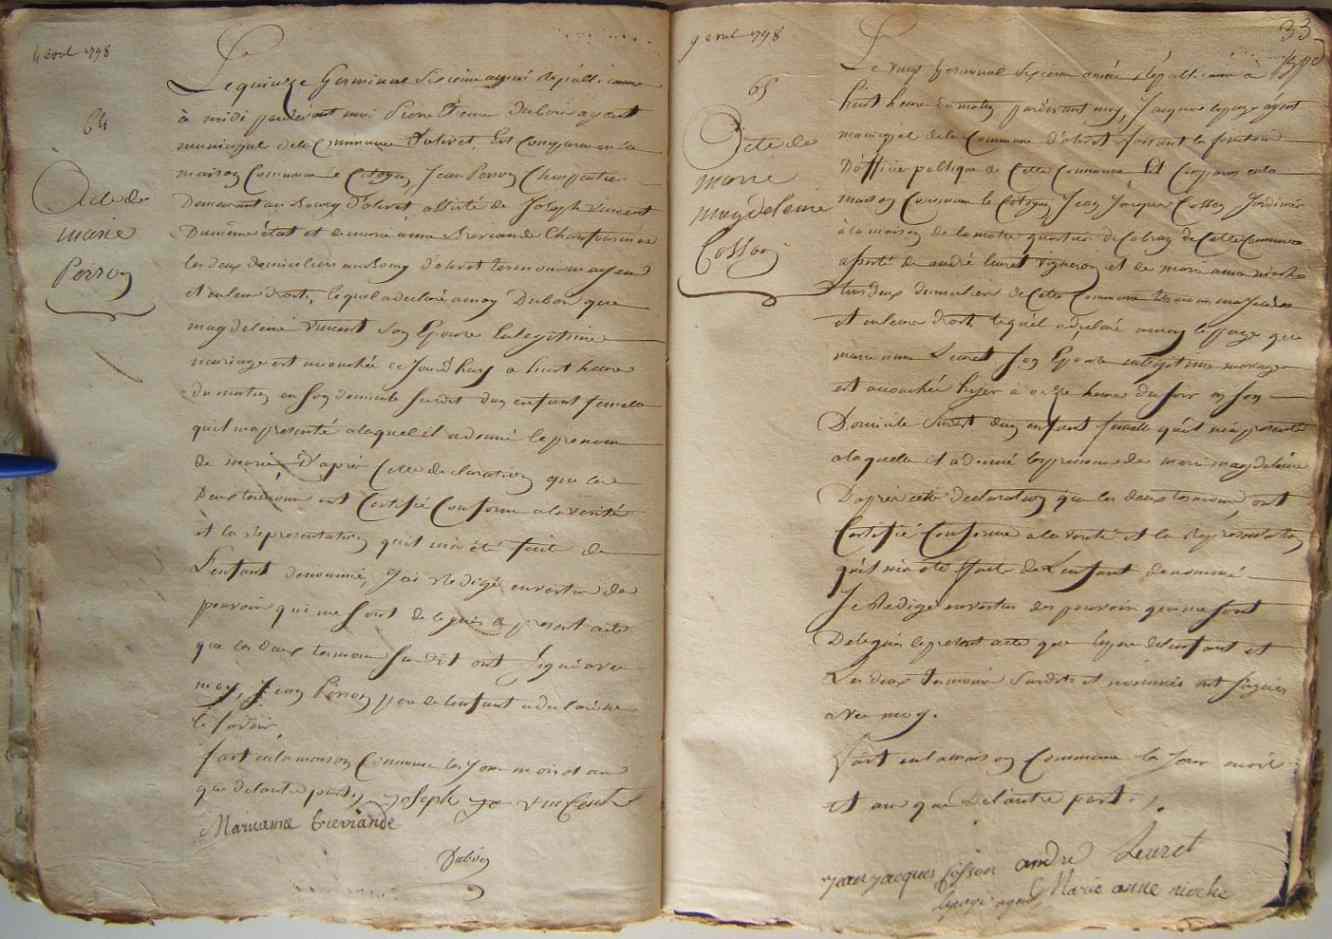 4 avril 1798
64
Acte de
marie
Perron
Le quinze Germinal Sixieme année Républicaine
à midi pardevant moi Pierre Etienne Dubois agent
municipal de la Commune d'olivet, Est Comparu en la
maison Commune le Citoyen Jean Perron Charpentier
Demeurant au Bourg d'olivet assisté de Joseph Vincent
Du même état et de marie anne Breviande
les deux domiciliés au Bourg d'olivet temoins majeurs
et en leur droit, lequel a declaré a moy Dubois que
magdeleine Vincent Son Epouse En legitime
mariage est accouchée ce Jourd'huy a huit heure
du matin en Son domicile Susdit d'un enfant femelle
qu'il m'a presenté a laquel il a donné le prenom
de marie D'après Cette declaration que les
Deux temoins ont Certifié Conforme a la verité
et la representation qu'il m'a été fait de
L'enfant denommé, J'ai Redigé en vertu des
pouvoir qui me Sont delegués le present acte
que les deux temoins Susdit ont Signé avec
moy, Jean Perron pere de lenfant a declaré ne
le Savoir
fait en la maison Commune les Jour mois et an
que delautre part, joseph vincent
Marieanne Breviande
Dubois
9 avril 1798
33
65
Acte de
marie
magdeleine
Cosson
Le vingt Germinal Sixieme année Républicaine a
huit heure du matin pardevant moy, Jacques lepage agent
municipal de la Commune d'olivet faisant la fonction
D'officier publique de Cette Commune Est Comparu en la
maison Commune le Citoyen Jean Jacques Cosson Jardinier
à la maison de la motte quartier de Cette Commune
assisté de andré leuret vigneron et de marie anne nioche
tous deux domiciliés de Cette Commune temoins majeurs
et en leur droit lequel a declaré a moy lepage que
marie anne Leuret Son Epouse en legitime mariage
est accouchée hyer à onze heure du Soir en Son
Domicile Susdit d'un enfant femelle qu'il m'a presenté
a laquelle il a donné les prenoms de marie magdeleine
D'après cette declaration que les deux temoins ont
Certifié Conforme a la verité et la Représentation
qu'il m'a été faite de L'enfant denommé
Je Redigé en vertu des pouvoir qui me sont
Delegués le present acte que le pere de lenfant et
Les deux temoins Susdits et nommés ont Signés
avec moy.
Fait en la maison Commune les Jour mois
et an que delautre part.
jean jacques cosson andré Leuret
lepage agent Marie anne nioche